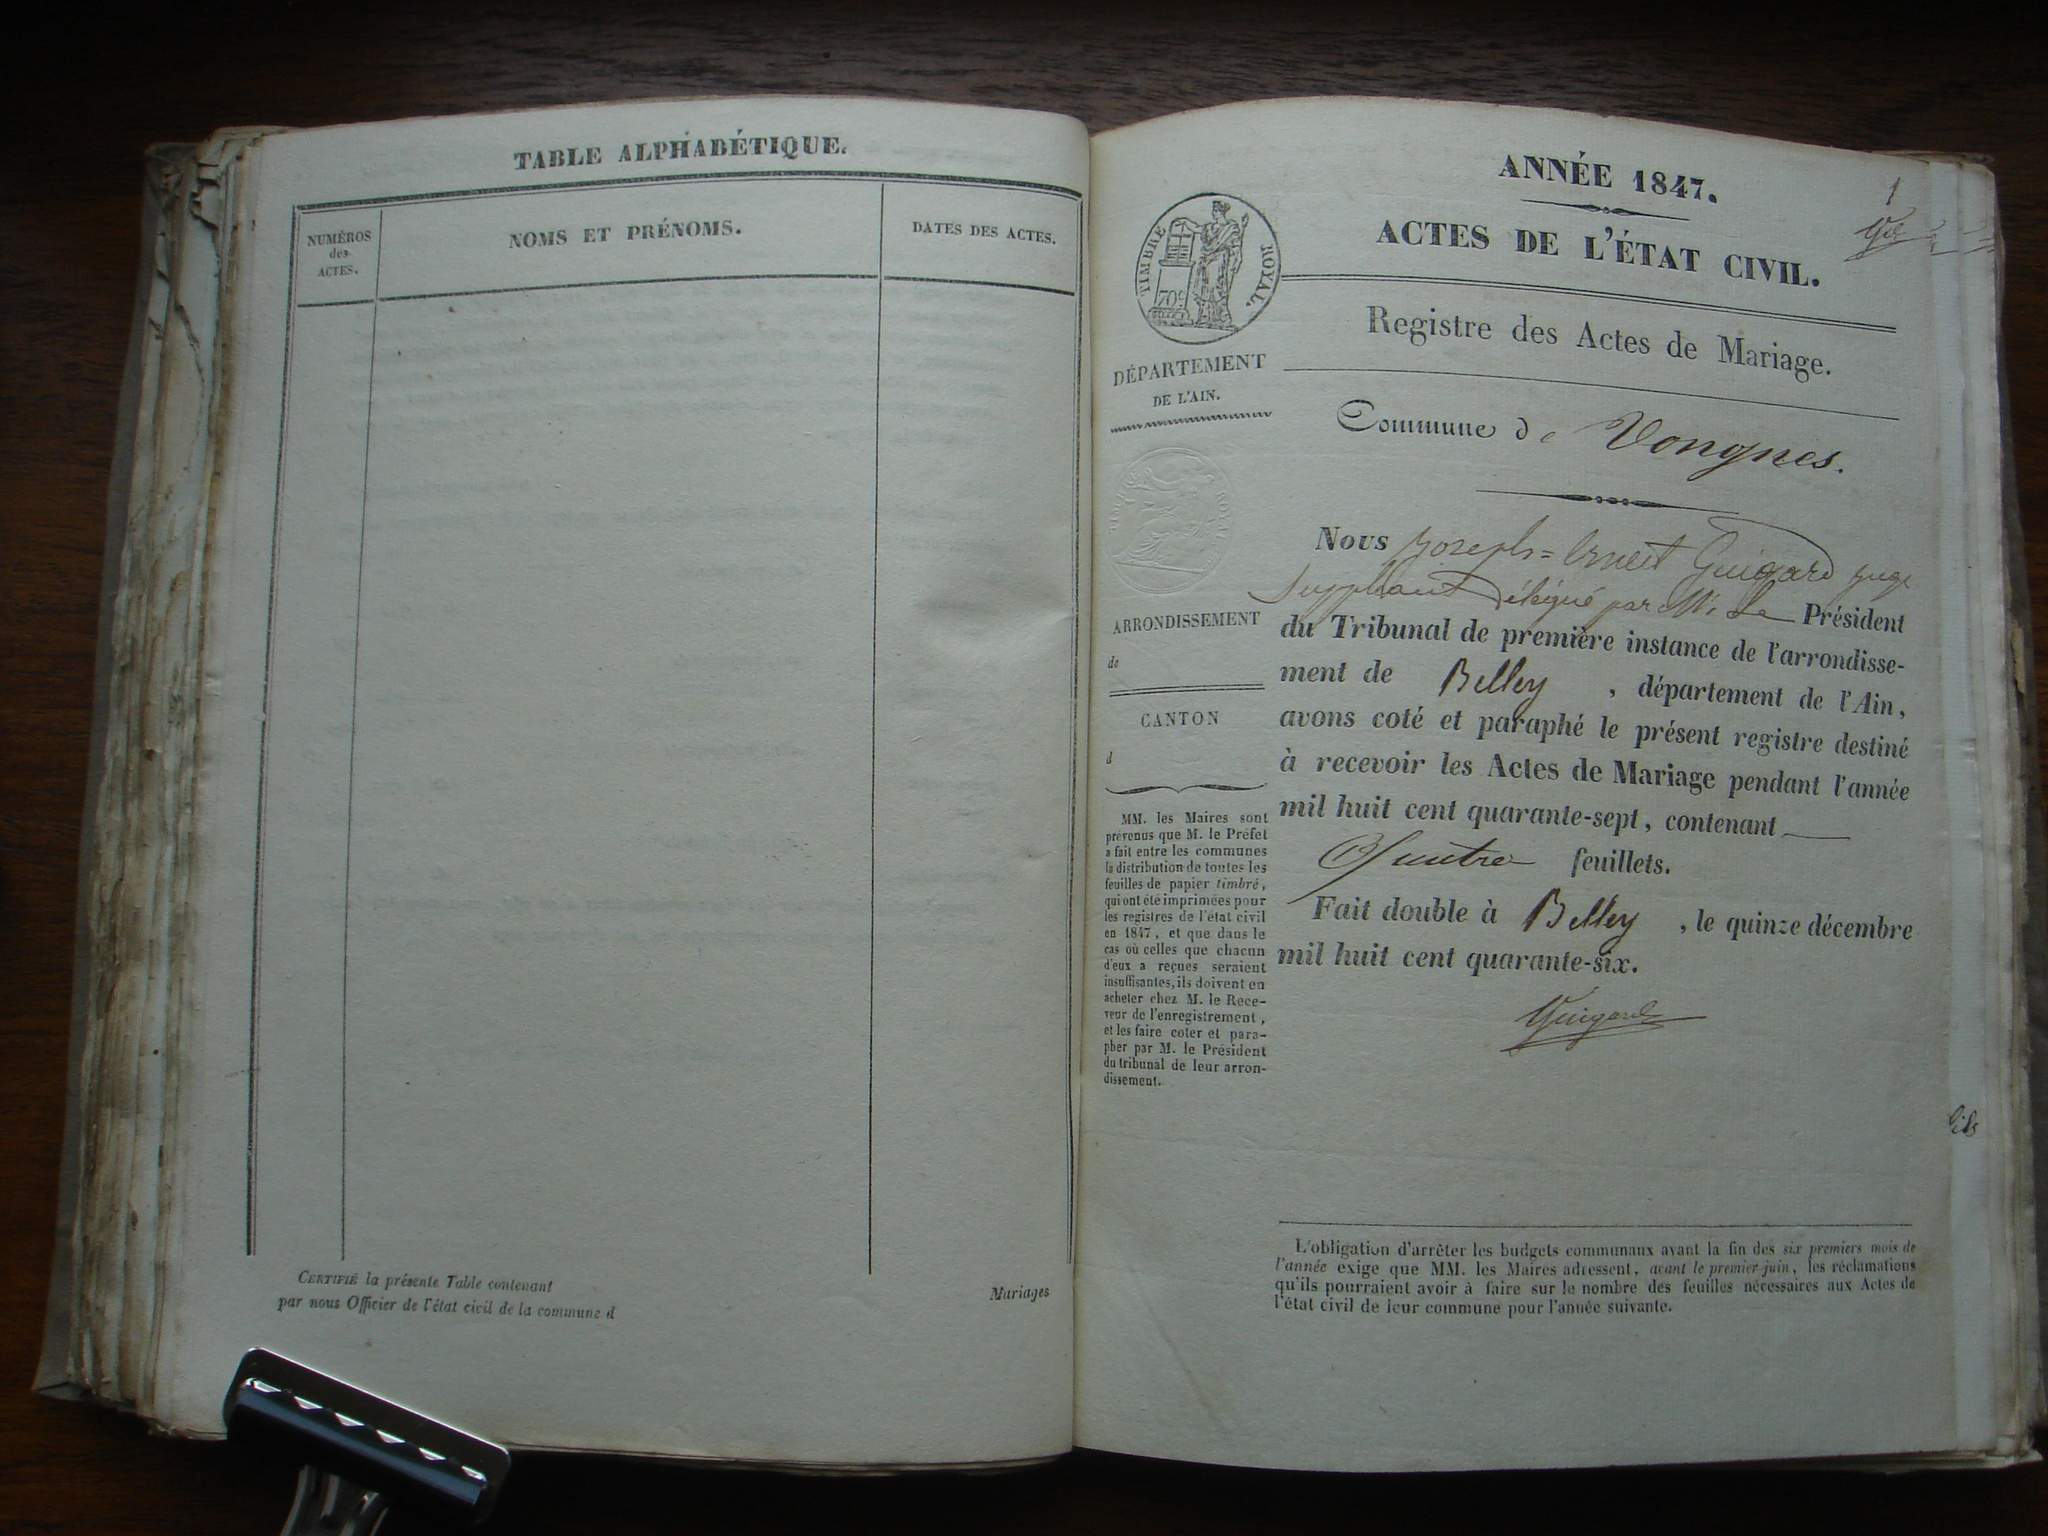 TABLE ALPHABÉTIQUE.
NUMÉROS
des
ACTES.
NOMS ET PRÉNOMS.
DATES DES ACTES.
CERTIFIÉ la présente Table contenant
par nous Officier de l'état civil de la commune d
Mariages
1
ANNÉE 1847.
ACTES DE L'ÉTAT CIVIL.
TIMBRE ROYAL.
70c
Registre des Actes de Mariage.
DÉPARTEMENT
DE L'AIN.
Commune de Vongnes.
Nous Joseph=Ernest Guigard juge
Suppléant délégué par Mr Le Président
du Tribunal de première instance de l'arrondisse-
ment de Belley , département de l'Ain,
avons coté et paraphé le présent registre destiné
à recevoir les Actes de Mariage pendant l'année
mil huit cent quarante-sept, contenant
Quatre feuillets.
Fait double à Belley , le quinze décembre
mil huit cent quarante-six.
Guigard
ARRONDISSEMENT
de
CANTON
d
MM. les Maires sont
prévenus que M. le Préfet
a fait entre les communes
la distribution de toutes les
feuilles de papier timbré,
qui ont été imprimées pour
les registres de l'état civil
en 1847, et que dans le
cas où celles que chacun
d'eux a reçues seraient
insuffisantes, ils doivent en
acheter chez M. le Rece-
veur de l'enregistrement,
et les faire coter et para-
pher par M. le Président
du tribunal de leur arron-
dissement.
L'obligation d'arrêter les budgets communaux avant la fin des six premiers mois de
l'année exige que MM. les Maires adressent, avant le premier juin, les réclamations
qu'ils pourraient avoir à faire sur le nombre des feuilles nécessaires aux Actes de
l'état civil de leur commune pour l'année suivante.